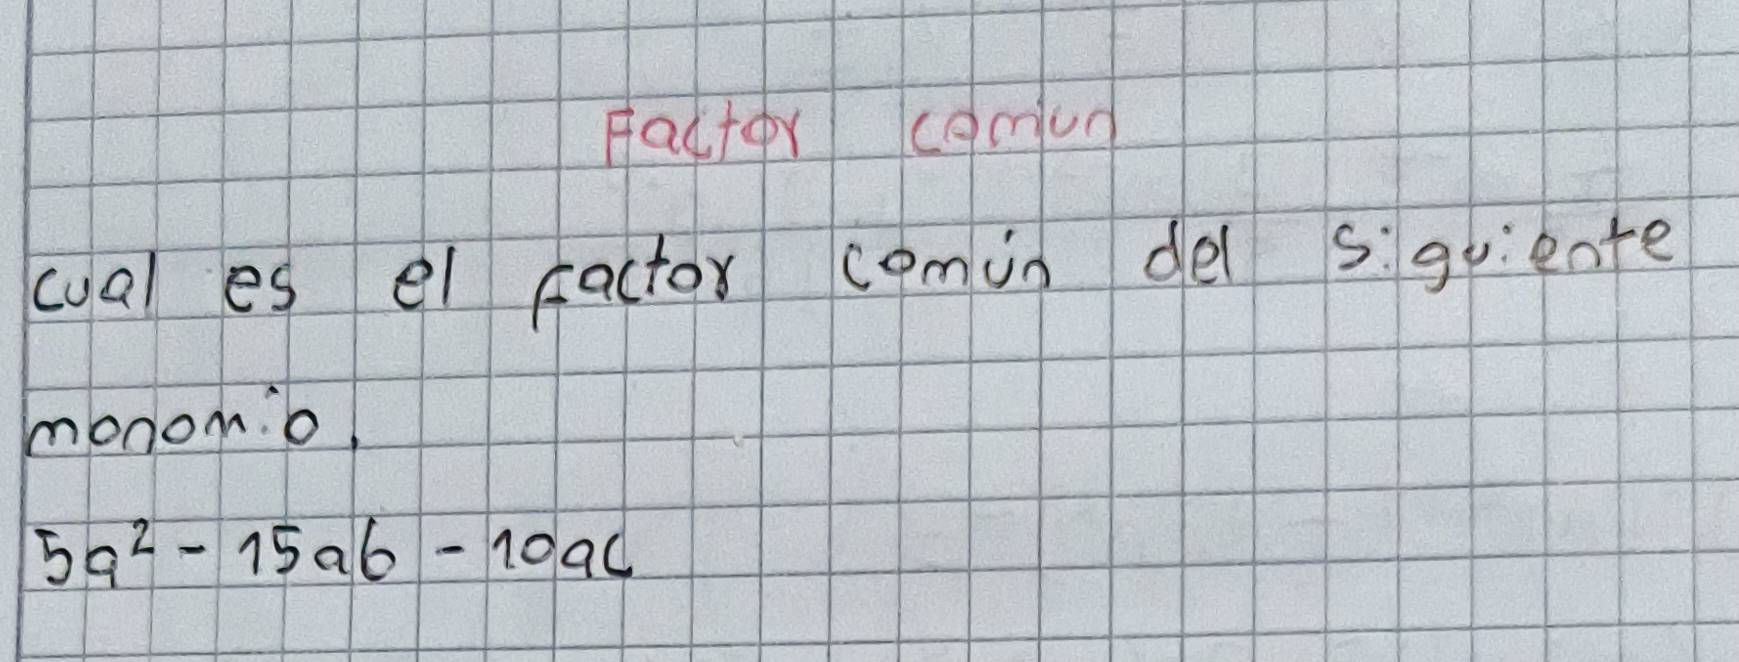 Factor común
cual es el factor común del siguiente
monomio.
5a² - 15ab - 10ac